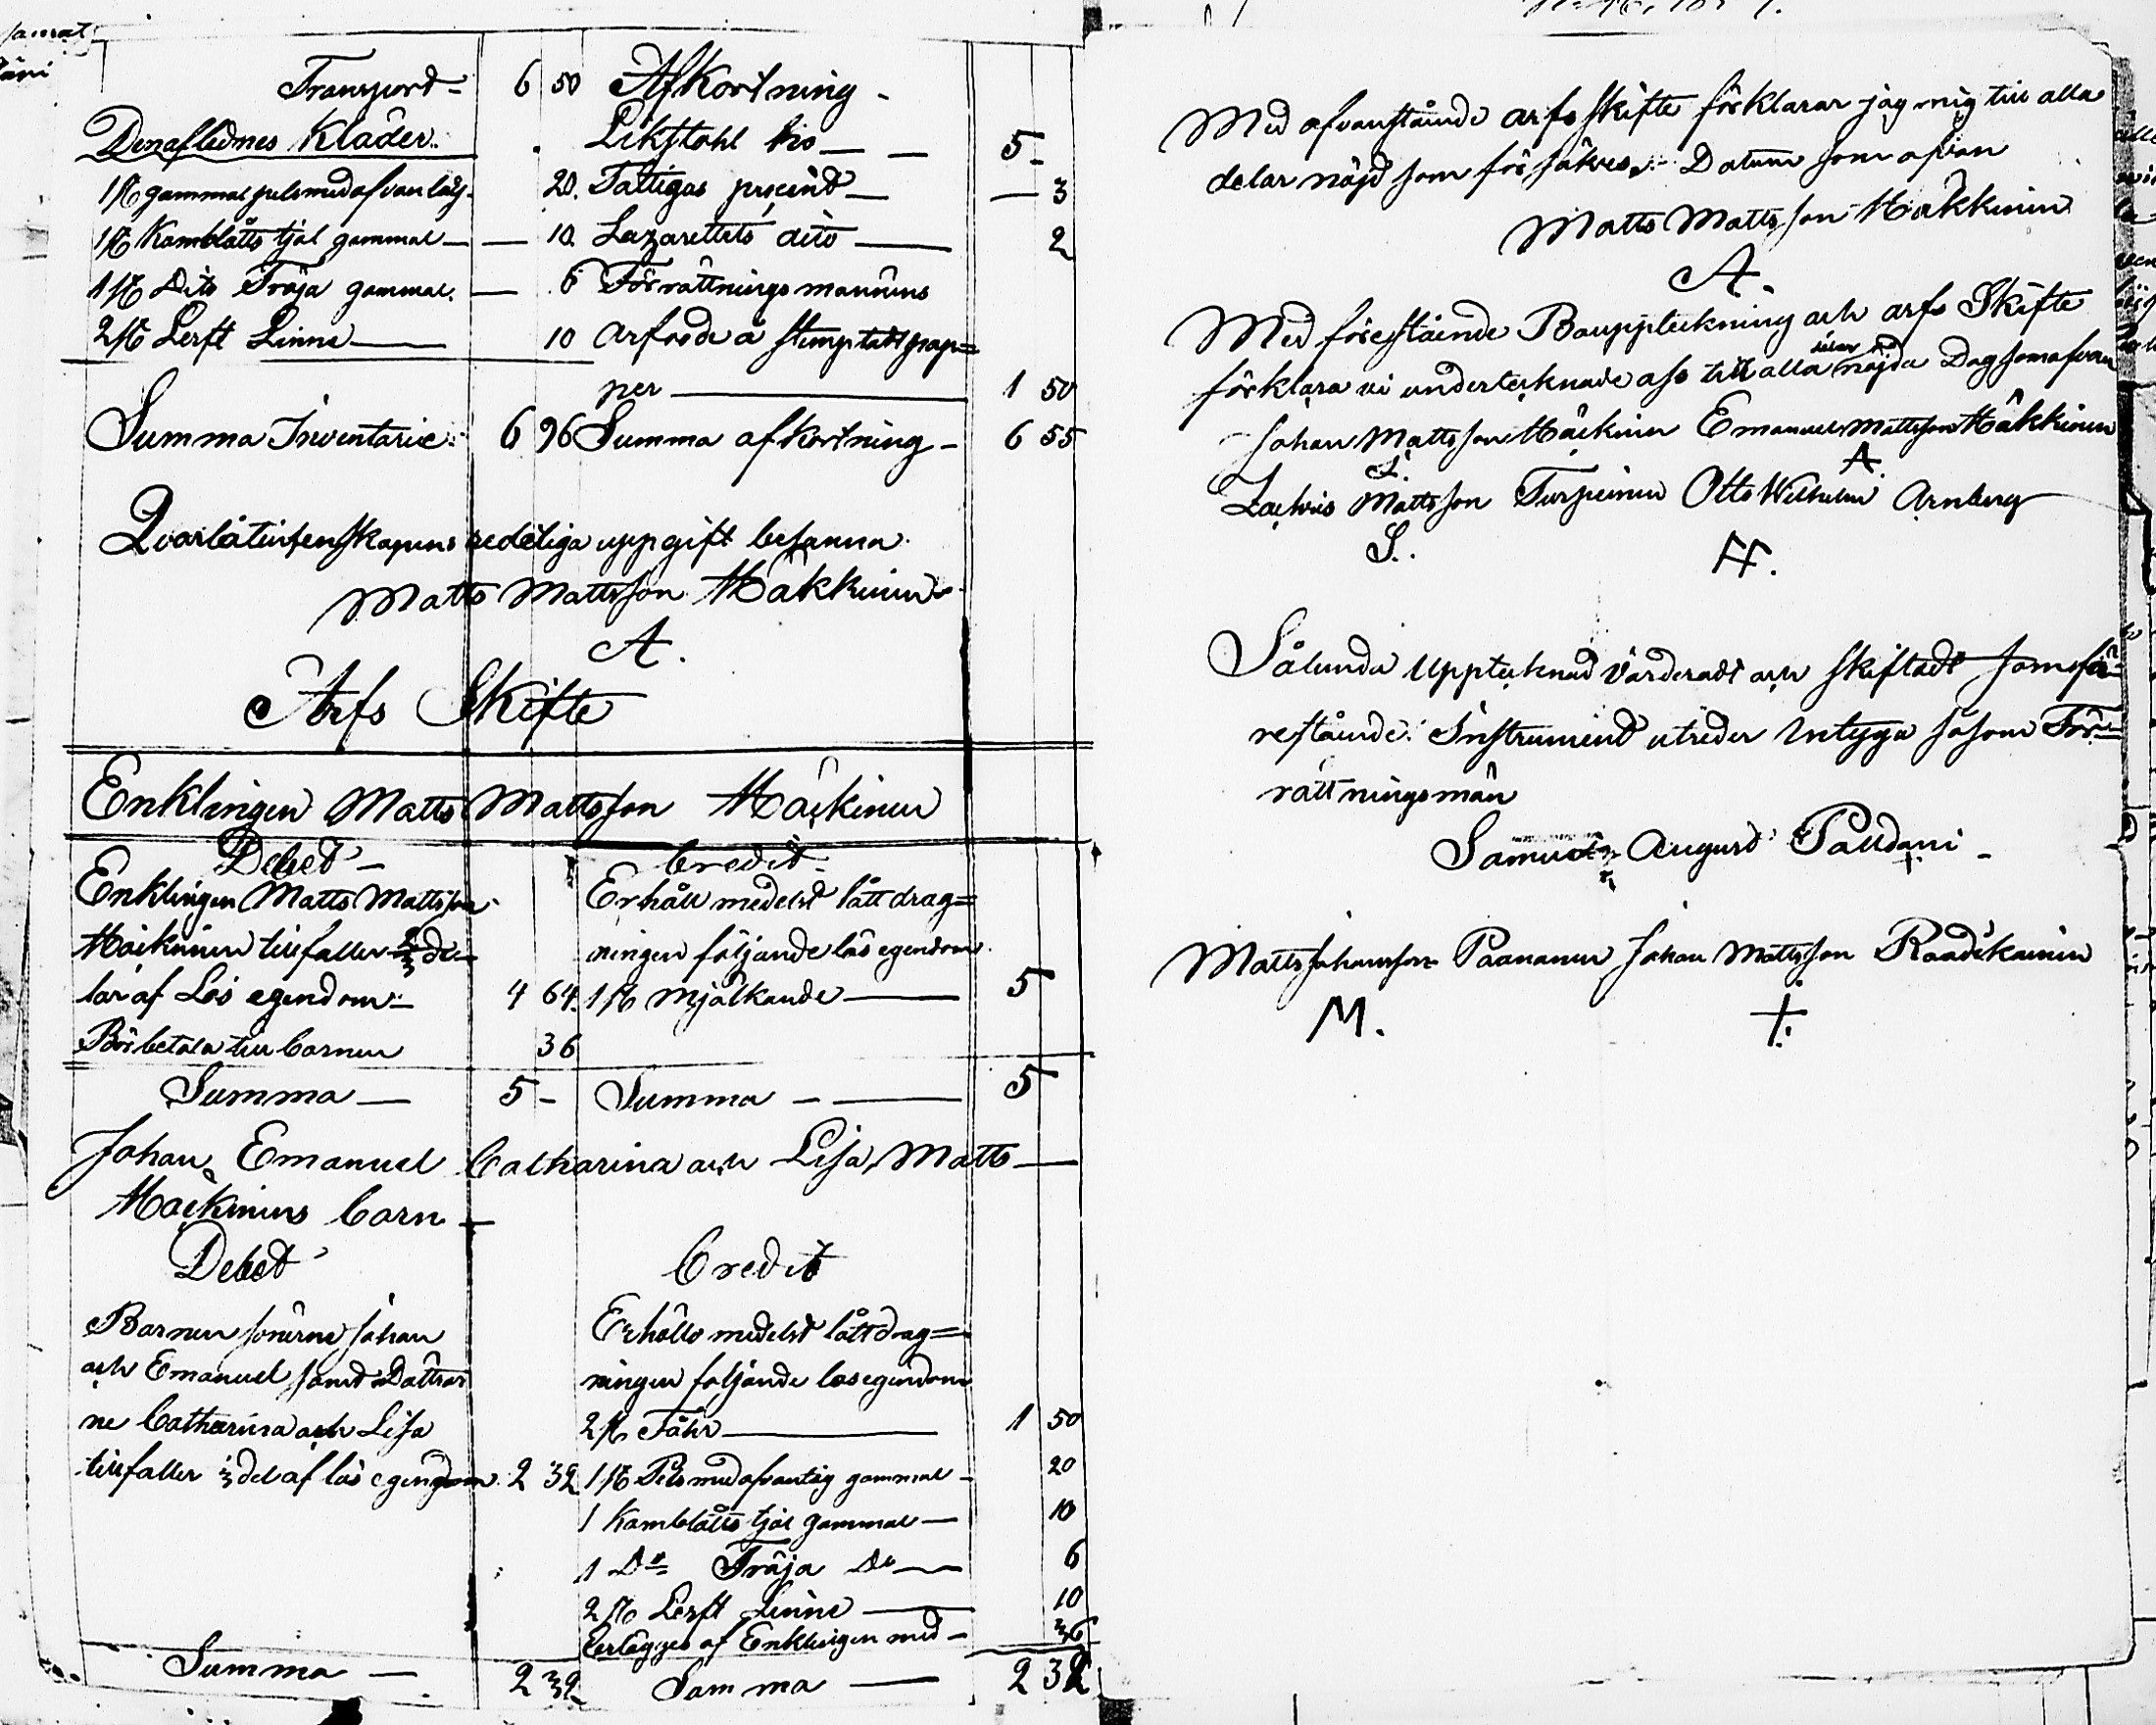 Transport - 6 50 Afkortning -
Denaflidnes Kläder. Likstohl bis — — 5 -
1 st gammal pels med afvan läg. 20. Fattigas procent — — 3
1 st Kamblåtts tjol gammal — — 10. Lazarettets dito — 2
1 st Dito Tröja gammal. — 6 Förrättnings mannens
2 st Lerft Linne — 10 arfvode à stempladt pap=
per — 1 50
Summa Inventarie. 6 96 Summa afkortning - 6 55
Qvarlåtenskapens redeliga uppgift besanna
Matts Mattsson Häkkinen
A.
Arfs Skifte
Enklingen Matts Mattsson Häckinen
Debet - Credit -
Enklingen Matts Mattsson Erhåll medelst låttdrag=
Häckinen tillfaller 2/3 de- ningen följande lös egendom
lar af Lös egendom 4 64. 1 st Mjölkande — 5
Bör betala till barnen 36
Summa — 5 - Summa - — 5
Johan, Emanuel Catharina och Lisa, Matts —
Häckinens barn -
Debet Credit
Barnen sönerne Johan Erhölls medelst låttdrag=
och Emanuel samt Döttrar ningen foljande losegendom
ne Catharina och Lisa 2 st Fåhr — 1 50
tillfaller 1/3 del af lös egendom 2 32 1 st Pels med afvantig gammal - 20
1 Kamblåtts tjol gammal — 10
1 Do Tröja Do — 6
2 st Lerft Linne — 10
Erlägges af Enklingen med - 36
Summa — 2 32 Summa — 2 32
Med ofvanstående arfs skifte förklarar jag mig till alla
delar nöjd som försäkras. Datum som ofvan
Matts Mattsson Häkkinen
A.
Med förestående Bouppteckning och arfs Skifte
förklara vi undertecknade oss till alla delar nöjda Dag som ofvan
Johan Mattsson Häckinen Emanuel Mattsson Häkkinen
A.
Zachris Mattsson Turpeinen Otto Wilhelm Arnberg
S. H.
Sålunda Upptecknad Värderadt och skiftadt som fö-
restående Instrument utreder Intyga såsom För=
rättningsmän
Samuel August Paldani -
Matts Johansson Paananen Johan Mattsson Raadikainen
M. +